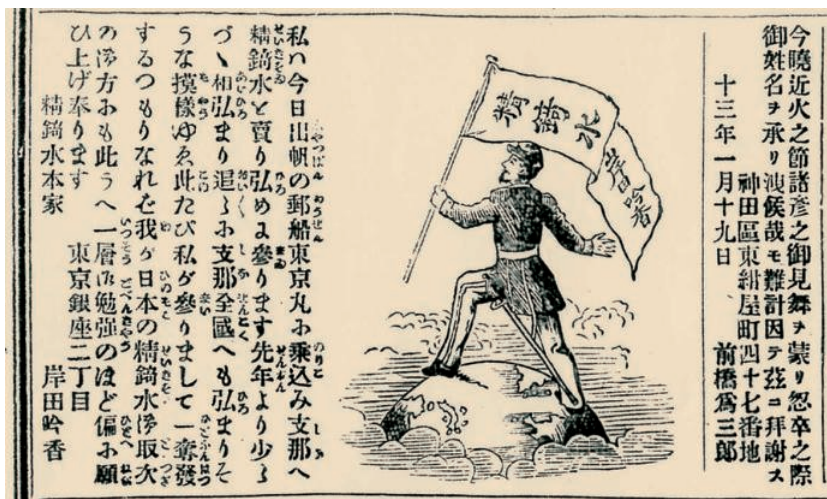 今曉近火之節諸彦之御見舞ヲ蒙リ怱卒之際
御姓名ヲ承リ洩候哉モ難計因テ茲ニ拜謝ス
神田區東紺屋町四十七番地
十三年一月十九日 前橋爲三郎
精錡水
岸田吟香
私ハ今日出帆の郵船東京丸に乗込み支那へ
精錡水を賣り弘めに參ります先年より少し
づゝ相弘まり追々に支那全國へも弘まりそ
うな摸樣ゆゑ此たび私が參りまして一奮發
するつもりなれば我が日本の精錡水御取次
の御方にも此うへ一層御勉強のほど偏に願
ひ上げ奉ります 東京銀座二丁目
精錡水本家 岸田吟香